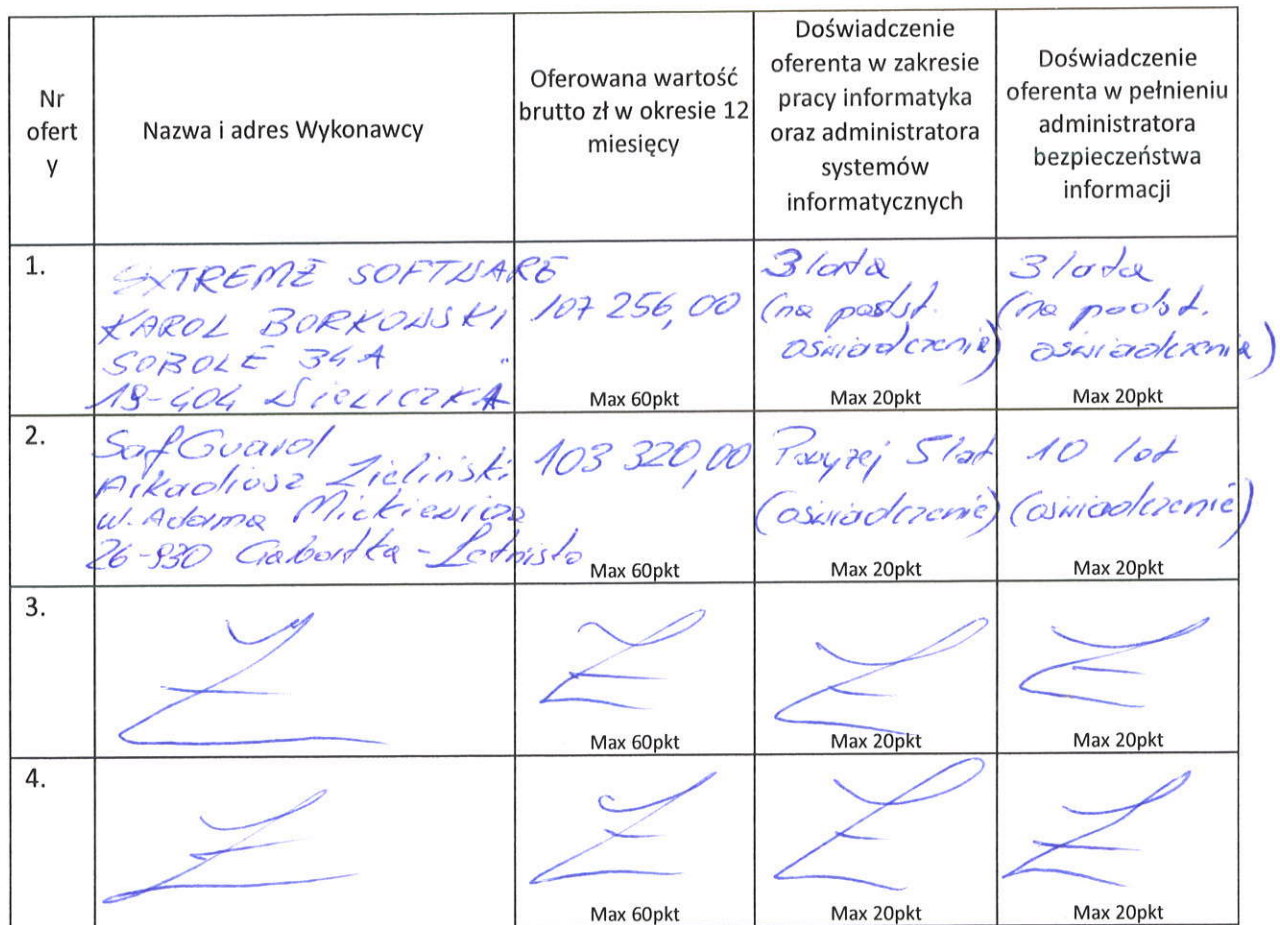 Nr
ofert
y
Nazwa i adres Wykonawcy
Oferowana wartość
brutto zł w okresie 12
miesięcy
Doświadczenie
oferenta w zakresie
pracy informatyka
oraz administratora
systemów
informatycznych
Doświadczenie
oferenta w pełnieniu
administratora
bezpieczeństwa
informacji
1.
EXTREME SOFTWARE
KAROL BORKOWSKI
SOBOLE 34A
19-404 WIELICZKA
107 256,00
Max 60pkt
3 lata
(na podst.
oświadczenia)
Max 20pkt
3 lata
(na podst.
oświadczenia)
Max 20pkt
2.
SafGuard
Arkadiusz Zieliński
ul. Adama Mickiewicza
26-930 Garbatka-Letnisko
103 320,00
Max 60pkt
Powyżej 5 lat
(oświadczenie)
Max 20pkt
10 lat
(oświadczenie)
Max 20pkt
3.
Max 60pkt
Max 20pkt
Max 20pkt
4.
Max 60pkt
Max 20pkt
Max 20pkt